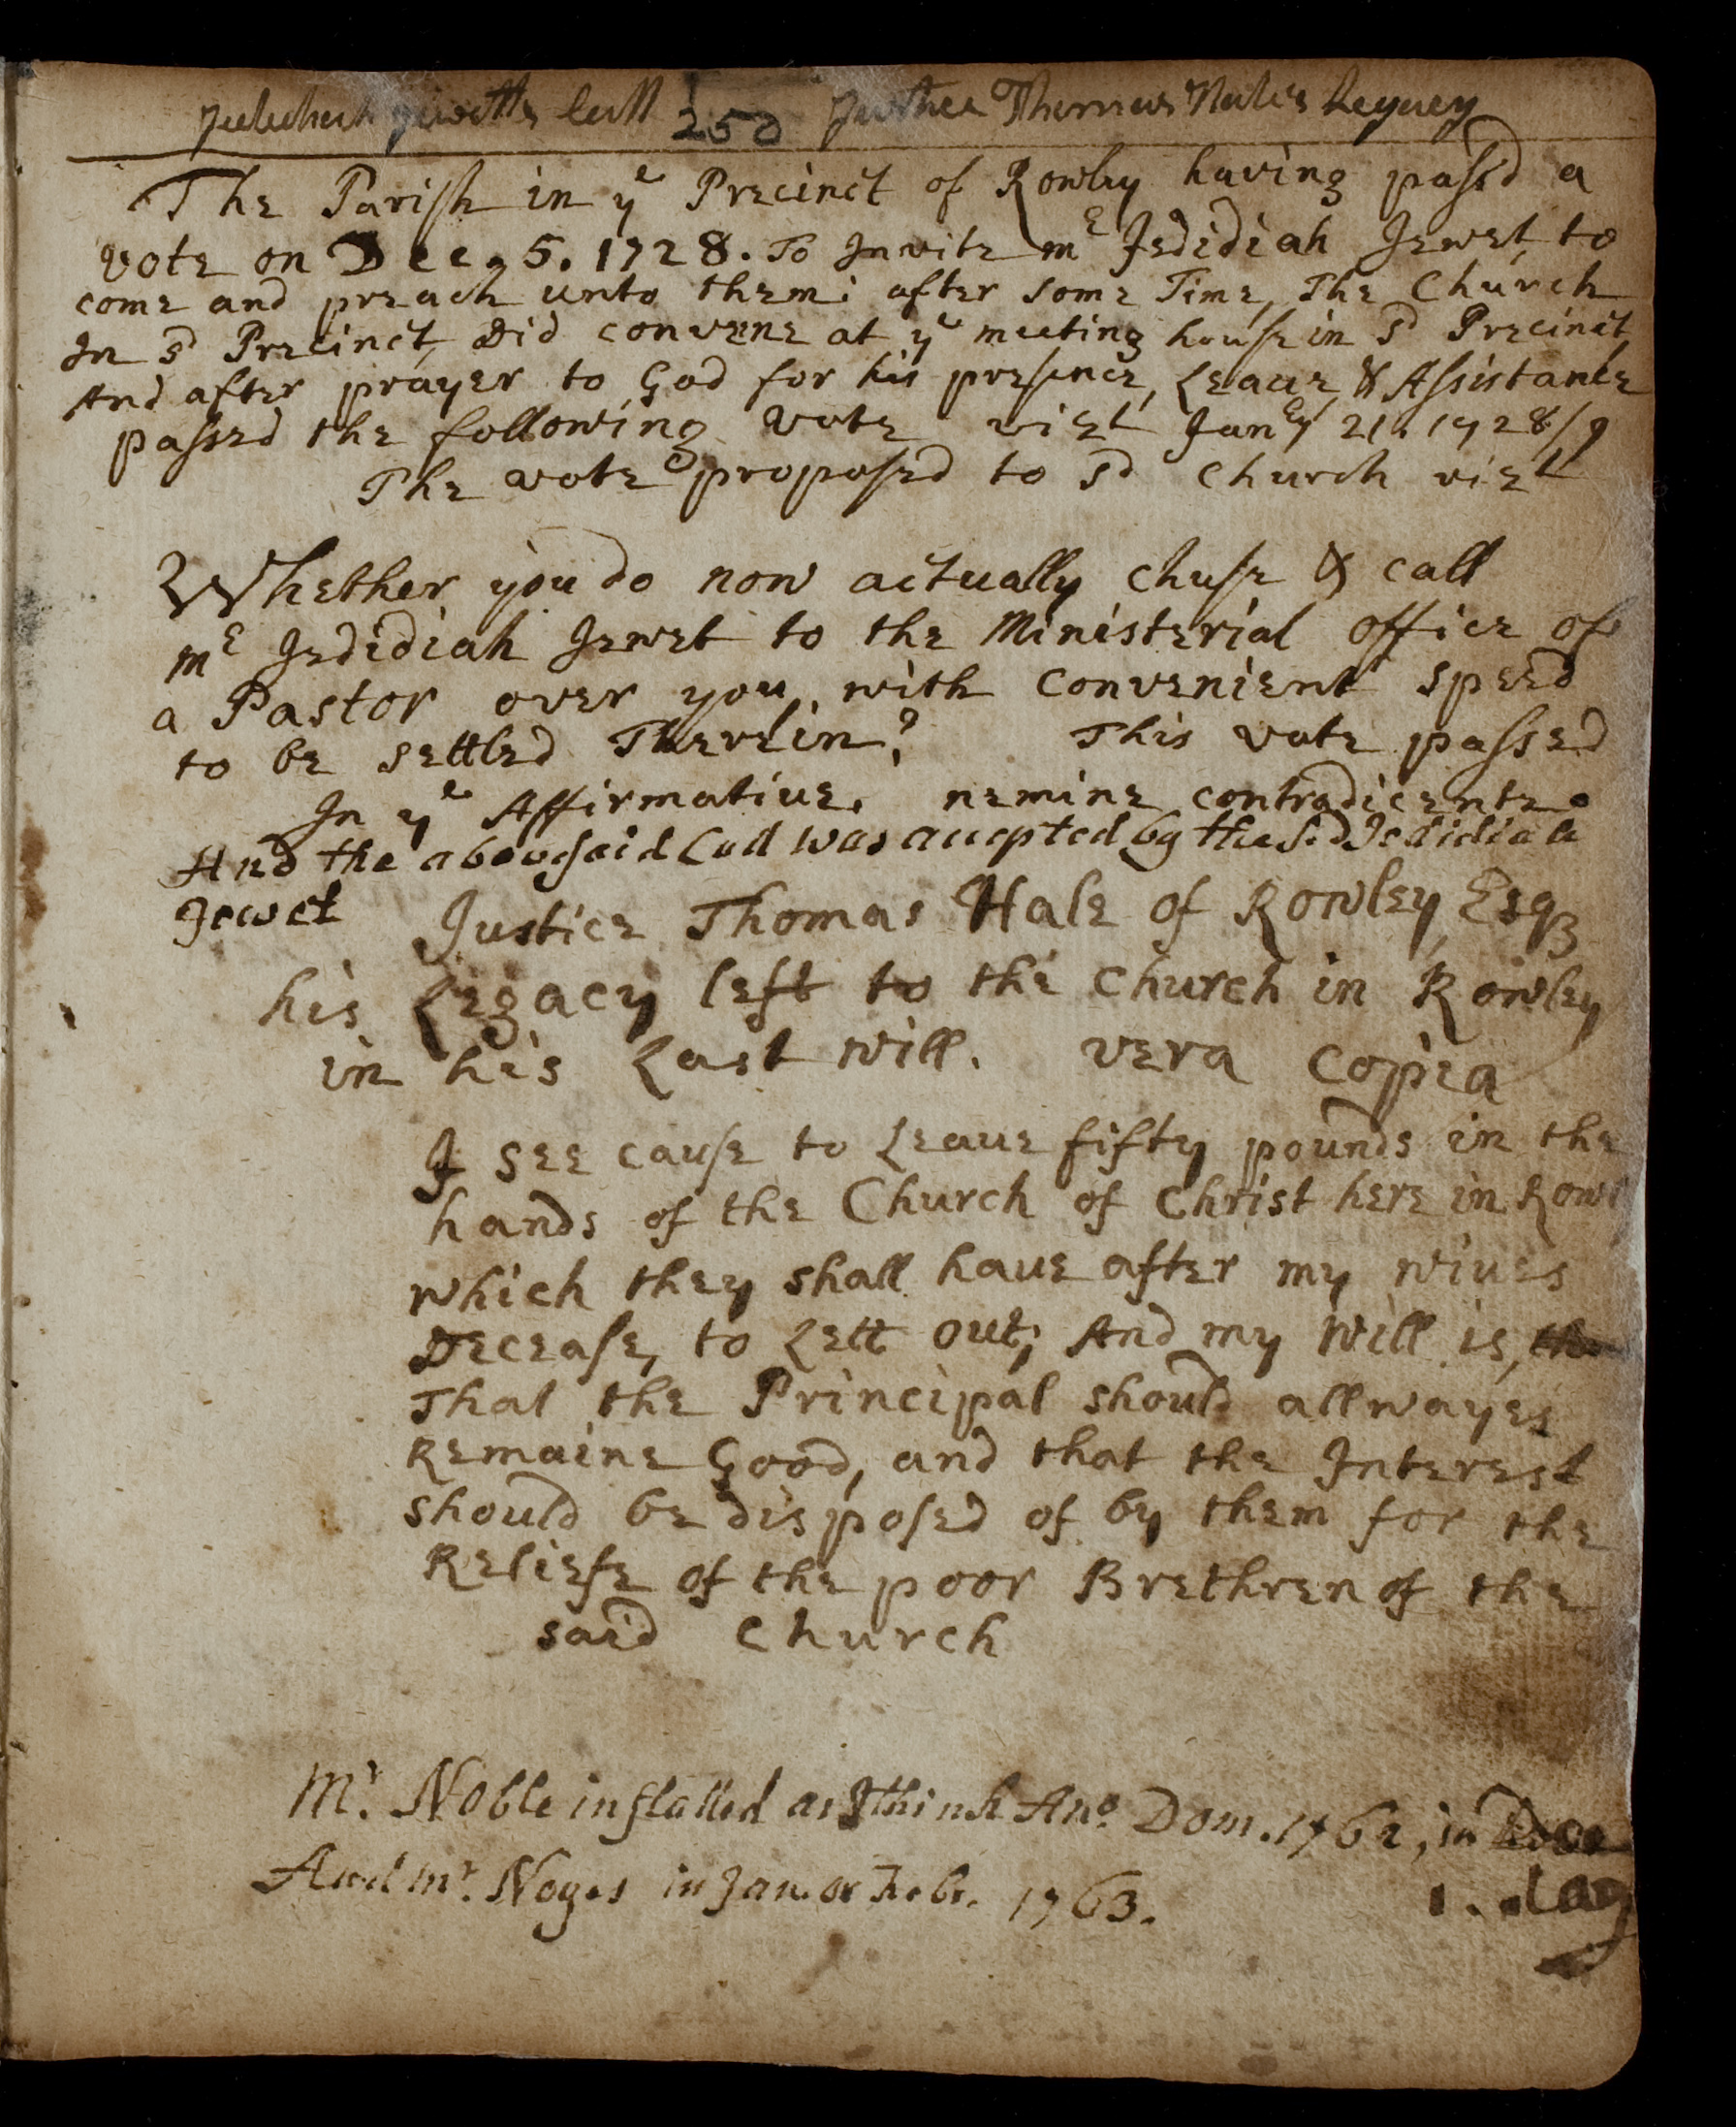 Jedidiah Jewetts Call 250 Justice Thomas Hales Legacy
The Parish in yᵉ Precinct of Rowley having passd a
vote on Dec. 5. 1728. To Invite mʳ Jedidiah Jewet to
come and preach unto them: after some Time, The Church
In sᵈ Precinct, Did convene at yᵉ meeting house in sᵈ Precinct
And after prayer to God for his presence, Leave & Assistance
passed the following vote vizt Janʳʸ 21. 1728/9
The vote proposed to sᵈ Church vizt
Whether you do now actually chuse & call
mʳ Jedidiah Jewet to the Ministerial office of
a Pastor over you, with convenient speed
to be settled Therein? This vote passed
In yᵉ Affirmative. nemine contradicente.
And the abovesaid Call was accepted by the sd Jedidiah
Jewet
Justice Thomas Hale of Rowley Esqʒ
his Legacy left to the Church in Rowley
in his Last will. vera copia
I see cause to Leave fifty pounds in the
hands of the Church of Christ here in Rowl
which they shall have after my wives
Decease, to Lett out; And my will is,
That the Principal should allwayes
Remaine Good, and that the Interest
should be disposed of by them for the
Reliefe of the poor Brethren of the
said Church
Mʳ. Noble installed as I think Anᵒ. Dom. 1762, in
And mʳ. Noyes in Jan. or Febr. 1763.